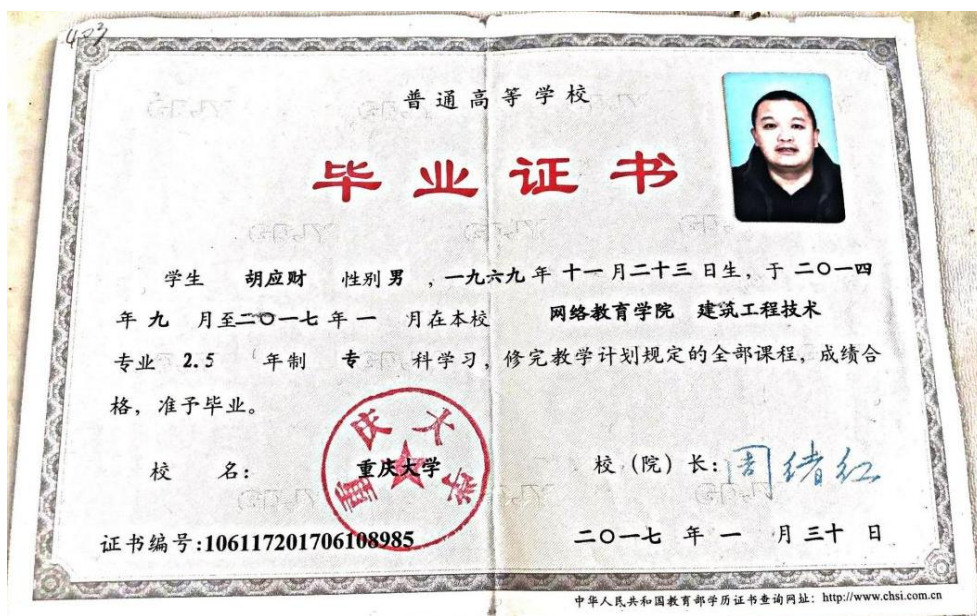 403
普通高等学校
毕业证书
学生 胡应财 性别 男 ，一九六九 年 十一 月二十三 日生，于 二〇一四
年 九 月至二〇一七 年 一 月在本校 网络教育学院 建筑工程技术
专业 2.5 年制 专 科学习，修完教学计划规定的全部课程，成绩合
格，准予毕业。
校 名： 重庆大学 校（院）长：周绪红
重庆大学
证书编号:106117201706108985 二〇一七 年 一 月 三十 日
中华人民共和国教育部学历证书查询网址：http://www.chsi.com.cn